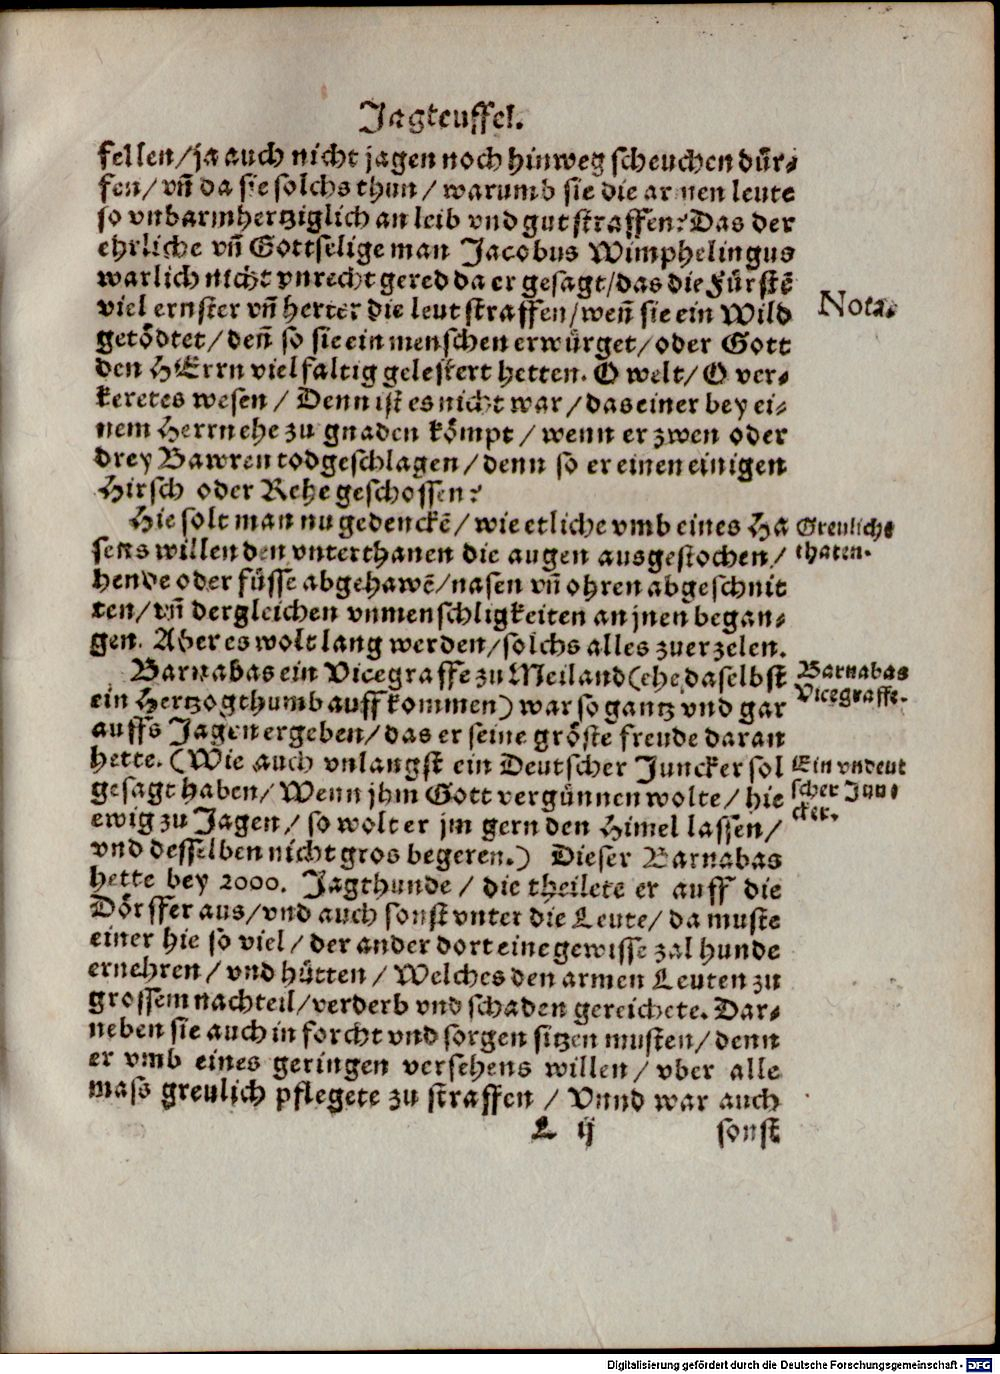 Jagteuffel.
fellen/ja auch nicht jagen noch hinweg scheuchen dür-
fen/ vñ da sie solchs thun/ warumb sie die armen leute
so vnbarmhertziglich an leib vnd gut straffen? Das der
ehrliche vñ Gottselige man Jacobus Wimphelingus
warlich nicht vnrecht gered da er gesagt/das die Fürstē
viel ernster vñ herter die leut straffen/weñ sie ein Wild
getödtet/deñ so sie ein menschen erwürget/oder Gott
den HErrn vielfaltig gelestert hetten. O welt/ O ver-
keretes wesen/ Denn ist es nicht war/das einer bey ei-
nem Herrn ehe zu gnaden kömpt/wenn er zwen oder
drey Bawren todgeschlagen/denn so er einen einigen
Hirsch oder Rehe geschossen?
Hie solt man nu gedenckē/wie etliche vmb eines Ha
sens willen den vnterthanen die augen ausgestochen/
hende oder füsse abgehawē/nasen vñ ohren abgeschnit
ten/vñ dergleichen vnmenschligkeiten an jnen began-
gen. Aber es wolt lang werden/solchs alles zuerzelen.
Barnabas ein Vicegraffe zu Meiland(ehe daselbst
ein Hertzogthumb auffkommen) war so gantz vnd gar
auffs Jagen ergeben/das er seine gröste freude daran
hette. (Wie auch vnlangst ein Deutscher Juncker sol
gesagt haben/Wenn jhm Gott vergünnen wolte/ hie
ewig zu Jagen/ so wolt er jm gern den Himel lassen/
vnd desselben nicht gros begeren.) Dieser Barnabas
hette bey 2000. Jagthunde/ die theilete er auff die
Dörffer aus/vnd auch sonst vnter die Leute/ da muste
einer hie so viel/ der ander dort eine gewisse zal hunde
ernehren/ vnd hütten/ Welches den armen Leuten zu
grossem nachteil/verderb vnd schaden gereichete. Dar-
neben sie auch in forcht vnd sorgen sitzen musten/denn
er vmb eines geringen versehens willen/ vber alle
mass greulich pflegete zu straffen/ Vnnd war auch
L ij sonst
Nota.
Greuliche
thaten.
Barnabas
Vicegraffe.
Ein vndeut
scher Jun-
cker.
Digitalisierung gefördert durch die Deutsche Forschungsgemeinschaft - DFG